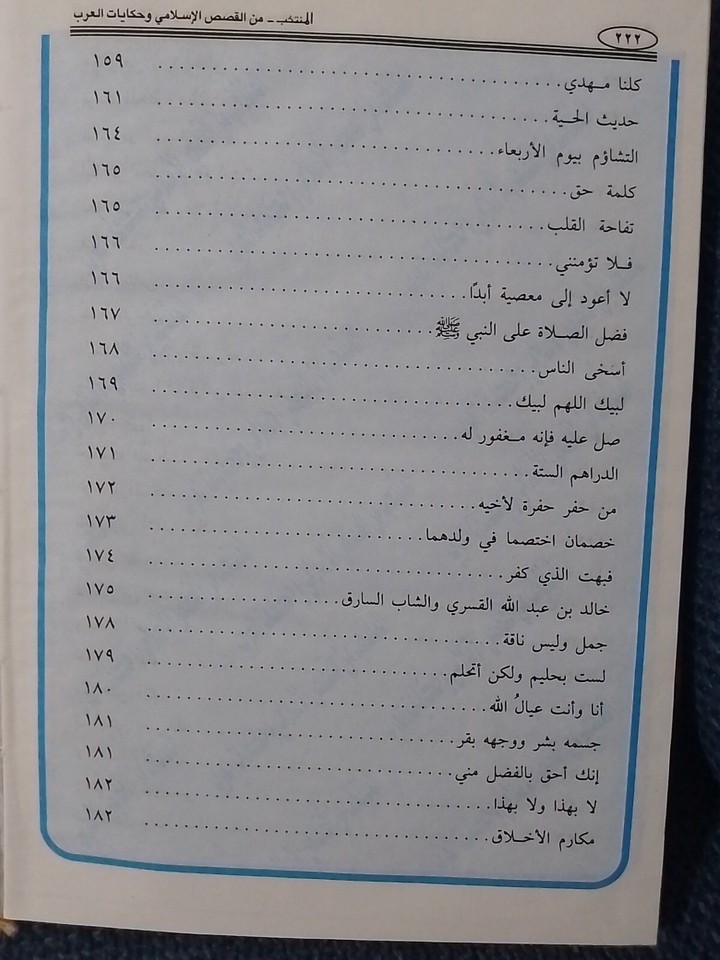 ٢٢٢
المنتخب - من القصص الإسلامي وحكايات العرب
كلنا مهدي ١٥٩
حديث الحية ١٦١
التشاؤم بيوم الأربعاء ١٦٤
كلمة حق ١٦٥
تفاحة القلب ١٦٥
فلا تؤمنني ١٦٦
لا أعود إلى معصية أبدًا ١٦٦
فضل الصلاة على النبي ﷺ ١٦٧
أسخى الناس ١٦٨
لبيك اللهم لبيك ١٦٩
صل عليه فإنه مغفور له ١٧٠
الدراهم الستة ١٧١
من حفر حفرة لأخيه ١٧٢
خصمان اختصما في ولدهما ١٧٣
فبهت الذي كفر ١٧٤
خالد بن عبد الله القسري والشاب السارق ١٧٥
جمل وليس ناقة ١٧٨
لست بحليم ولكن أتحلم ١٧٩
أنا وأنت عيالُ الله ١٨٠
جسمه بشر ووجهه بقر ١٨١
إنك أحق بالفضل مني ١٨١
لا بهذا ولا بهذا ١٨٢
مكارم الأخلاق ١٨٢